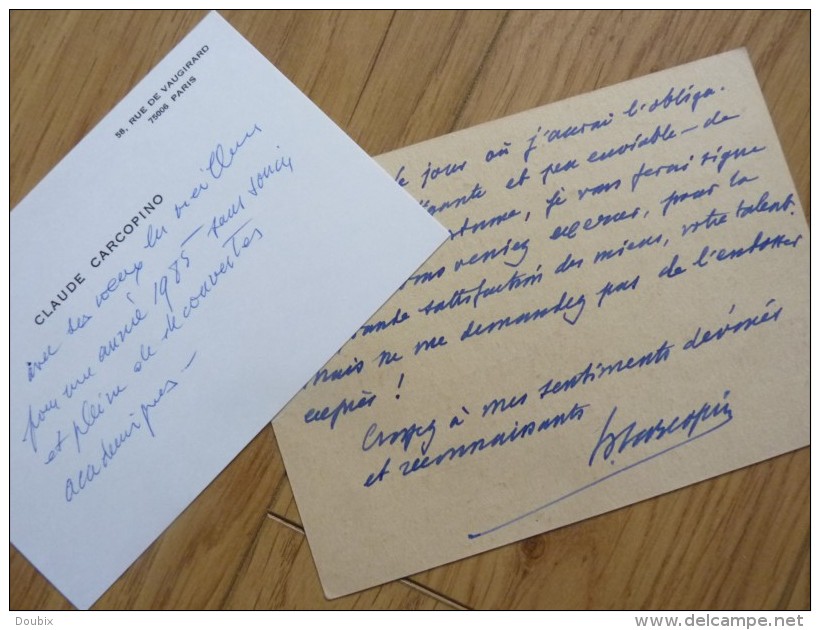 58, RUE DE VAUGIRARD
75006 PARIS
CLAUDE CARCOPINO
avec ses voeux les meilleurs
pour une année 1985 - sans souci
et pleine de découvertes
académiques -
le jour où j'aurai l'obliga-
et peu enviable - de
je vous ferai signe
vous veniez exercer, pour la
grande satisfaction des miens, votre talent.
Mais ne me demandez pas de l'endosser
exprès !
Croyez à mes sentiments dévoués
et reconnaissants
Carcopino
Doubix
www.delcampe.net